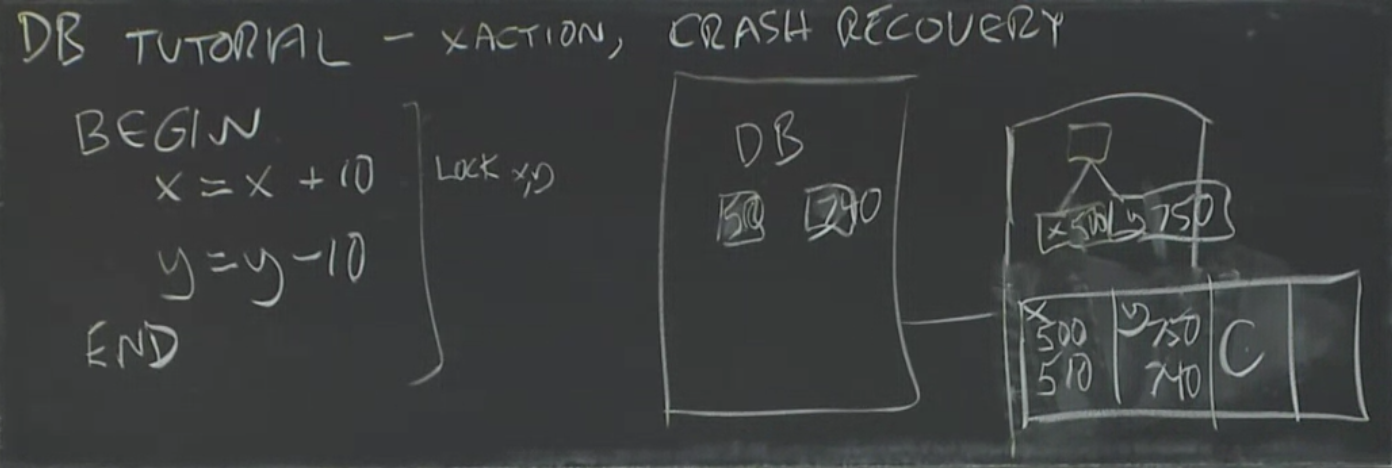 DB TUTORIAL - XACTION, CRASH RECOVERY
BEGIN
x = x + 10
y = y - 10
END
LOCK x,y
DB
510 740
x 500 y 750
x 500 510
y 750 740
C